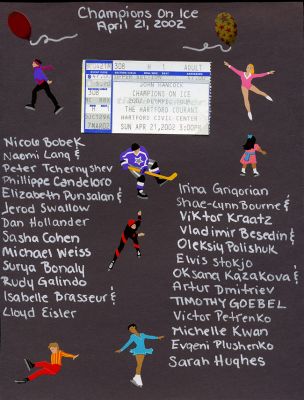 Champions On Ice
April 21, 2002
308 H 1 ADULT
JOHN HANCOCK
CHAMPIONS ON ICE
2002 OLYMPIC TOUR
THE HARTFORD COURANT
HARTFORD CIVIC CENTER
SUN APR 21,2002 3:00PM
Nicole Bobek
Naomi Lang &
Peter Tchernyshev
Phillippe Candeloro
Elizabeth Punsalan &
Jerod Swallow
Dan Hollander
Sasha Cohen
Michael Weiss
Surya Bonaly
Rudy Galindo
Isabelle Brasseur &
Lloyd Eisler
Irina Grigorian
Shae-Lynn Bourne &
Viktor Kraatz
Vladimir Besedin &
Oleksiy Polishuk
Elvis Stokjo
Oksana Kazakova &
Artur Dmitriev
TIMOTHY GOEBEL
Victor Petrenko
Michelle Kwan
Evgeni Plushenko
Sarah Hughes